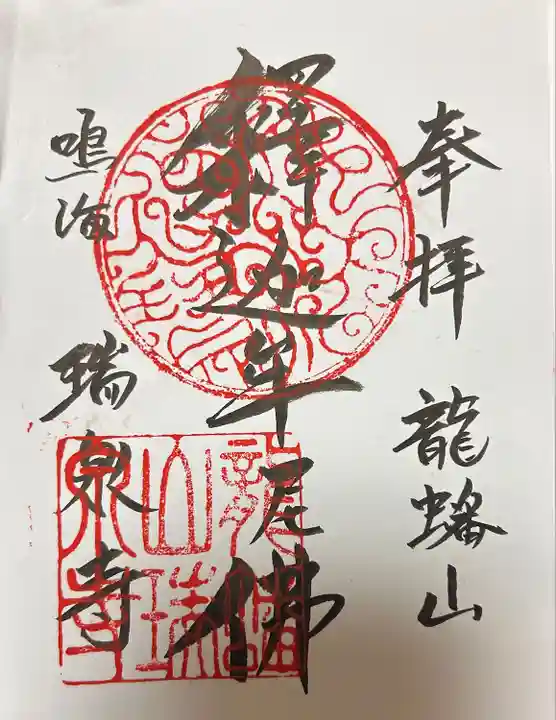 奉拝 龍蟠山
釋迦牟尼佛
鳴海 瑞泉寺
龍蟠
山瑞
泉寺